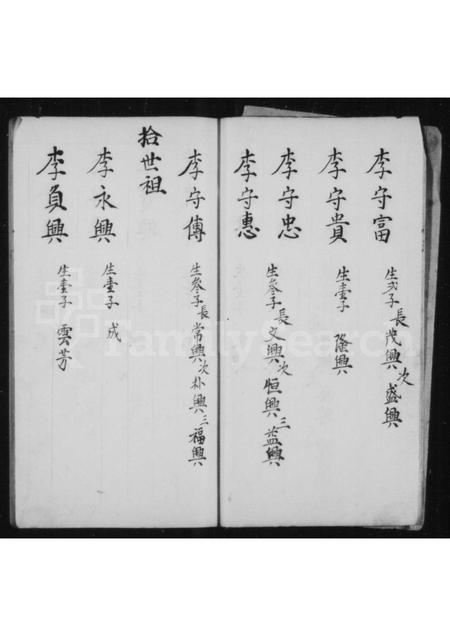 李守富 生弍子長茂興次盛興
李守貴 生壹子 隆興
李守忠 生叄子長文興次恒興三益興
李守惠
李守傳 生叄子長常興次朴興三福興
拾世祖
李永興 生壹子 成
李負興 生壹子 雲芳
FamilySearch